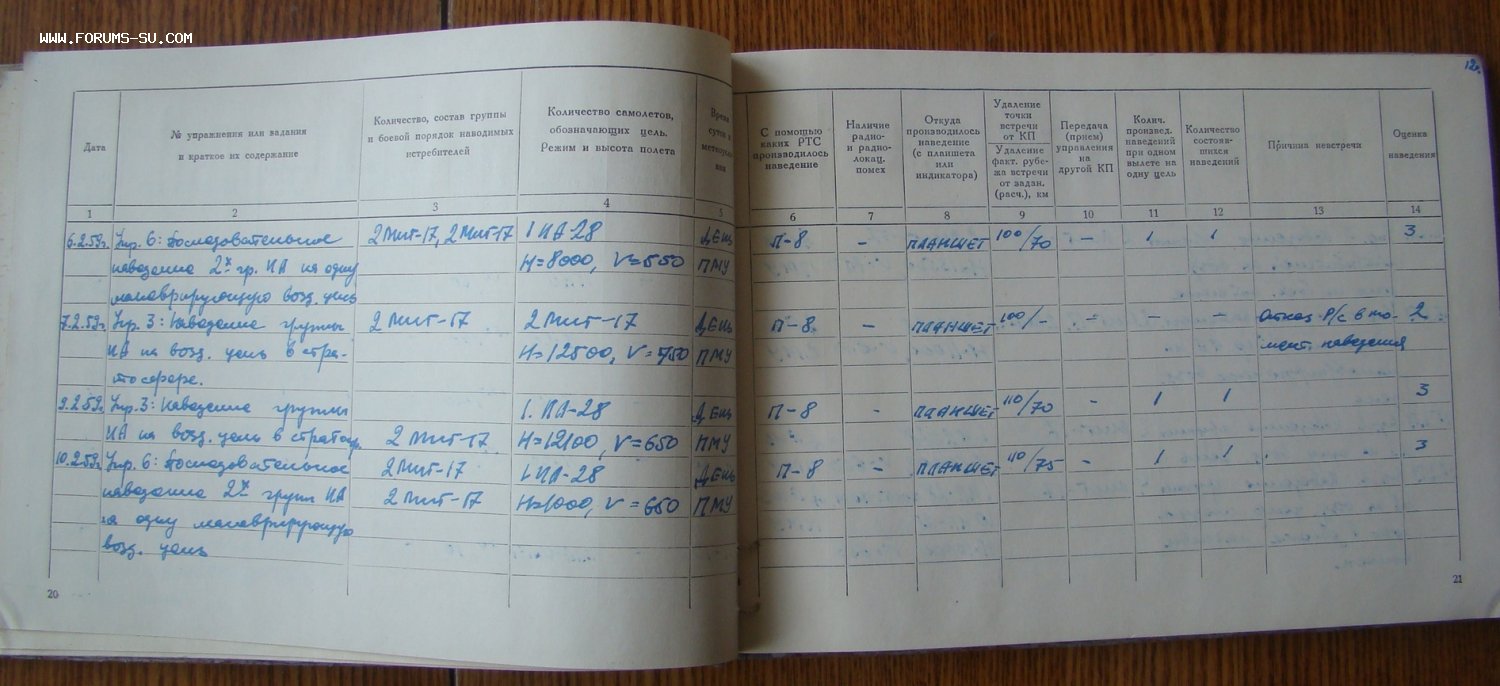 www.forums-su.com
12.
Дата
№ упражнения или задания
и краткое их содержание
Количество, состав группы
и боевой порядок наводимых
истребителей
Количество самолетов,
обозначающих цель.
Режим и высота полета
Время
суток и
С помощью
каких РТС
производилось
наведение
Наличие
радио-
и радио-
локац.
помех
Откуда
производилось
наведение
(с планшета
или
индикатора)
Удаление
точки
встречи
от КП
Удаление
факт. рубе-
жа встречи
от задан.
(расч.), км
Передача
(прием)
управления
на
другой КП
Колич.
произвед.
наведений
при одном
вылете на
одну цель
Количество
состояв-
шихся
наведений
Причина невстречи
Оценка
наведения
1 2 3 4 5 6 7 8 9 10 11 12 13 14
6.2.59г. Упр. 6: Последовательное 2 Миг-17, 2 Миг-17 1 ИЛ-28 День П-8 – планшет 100/70 – 1 1 3
наведение 2х гр. ИА на одну Н=8000, V=550 ПМУ
маневрирующую возд. цель
7.2.59г. Упр. 3: Наведение группы 2 Миг-17 2 Миг-17 День П-8 – планшет 100/- – – – Отказ Р/с в мо- 2
ИА на возд. цель в стра- Н=12500, V=750 ПМУ мент. наведения
тосфере.
9.2.59г. Упр. 3: Наведение группы 1. ИЛ-28 День П-8 – планшет 110/70 – 1 1 3
ИА на возд. цель в стратосф. 2 Миг-17 Н=12100, V=650 ПМУ
10.2.59г. Упр. 6: Последовательное 2 Миг-17 1 ИЛ-28 День П-8 – планшет 110/75 – 1 1 3
наведение 2х групп ИА 2 Миг-17 V=650 ПМУ
на одну маневрирующую
возд. цель
20
21